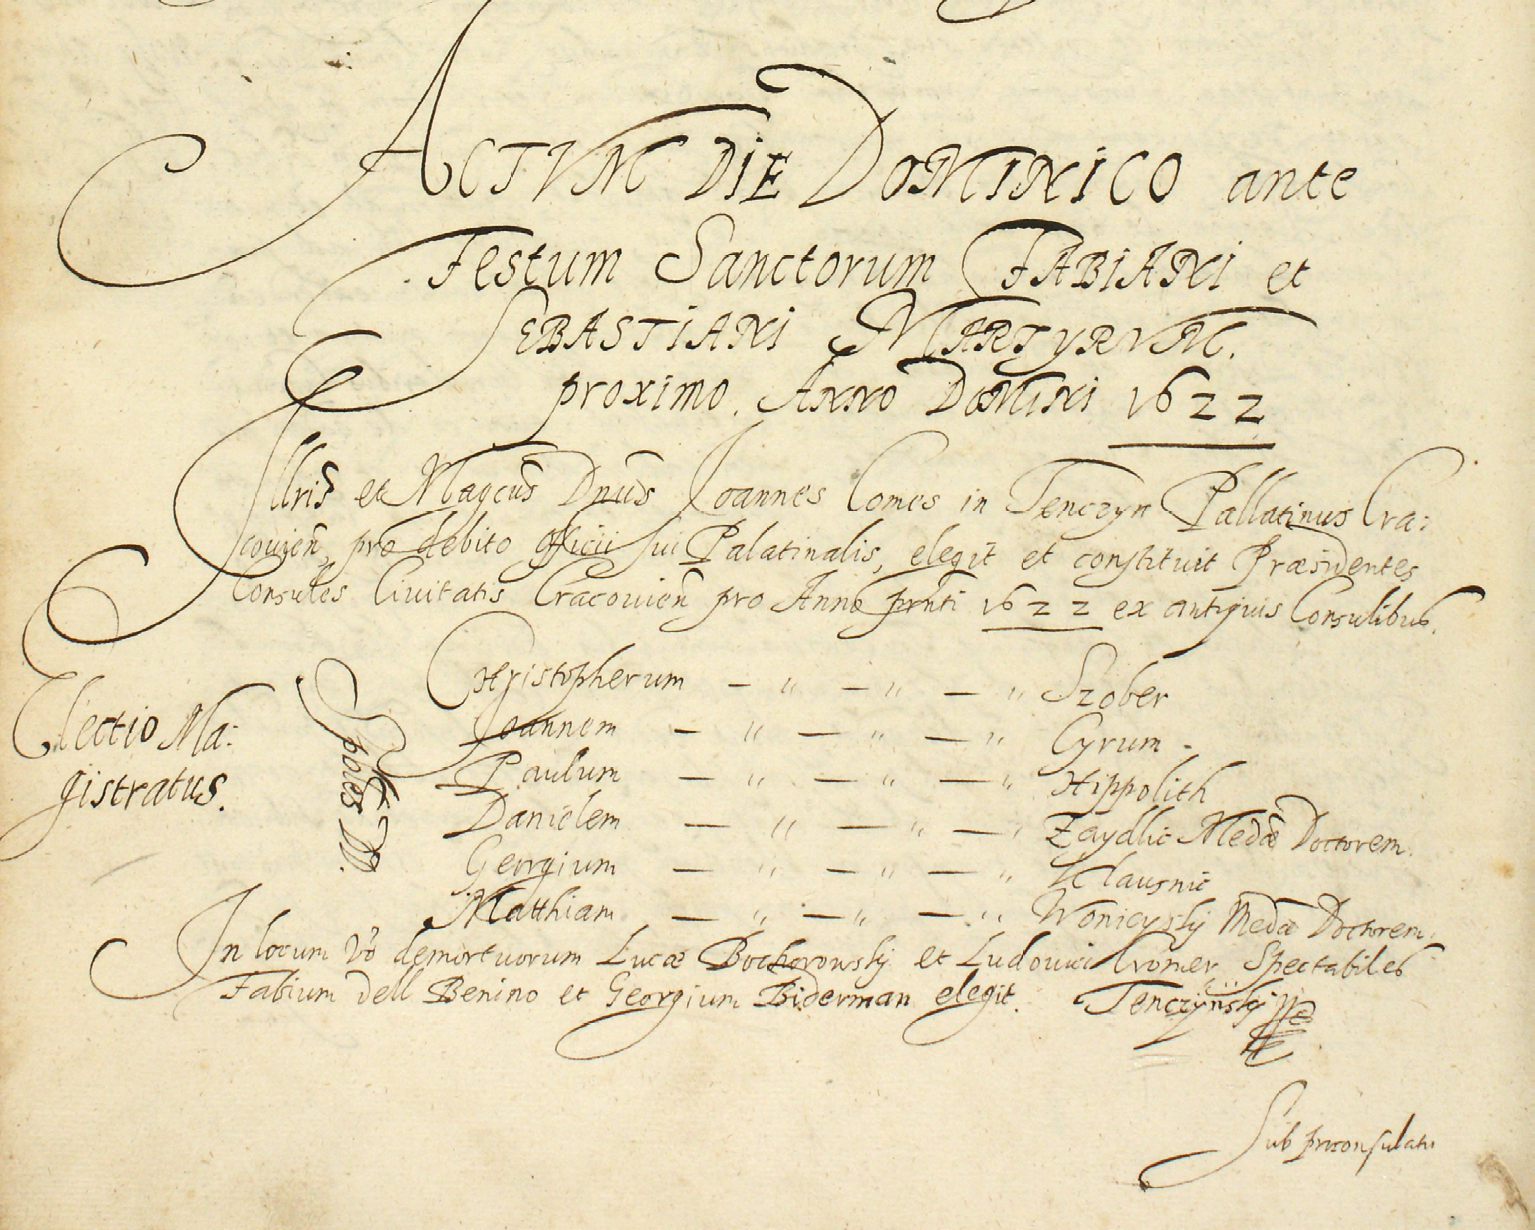 ACTVM DIE DOMINICO ante
Festum Sanctorum FABIANI et
SEBASTIANI MARTYRVM.
proximo. ANNO DOMINI 1622
Illris et Magcus Dnus Joannes Comes in Tenczyn Pallatinus Cra:
couien, pro debito officii sui Palatinalis, elegit et constituit Præsidentes
Consules Ciuitatis Cracouien pro Anno prnti 1622 ex antiquis Consulibus.
Electio Ma:
gistratus.
Spbles DD.
Christopherum — " — " — " Szober
Joannem — " — " — " Cyrum.
Paulum — " — " — " Hippolith
Danielem — " — " — " Zaydlic Medæ Doctorem.
Georgium — " — " — " Klausnic
Matthiam — " — " — " Wonieyskÿ Medæ Doctorem.
In locum Vo demortuorum Lucæ Bochorowskÿ et Ludouici Cromer Spectabiles
Fabium dell Benino et Georgium Biderman elegit. Tenczÿnskÿ
Sub proconsulatu